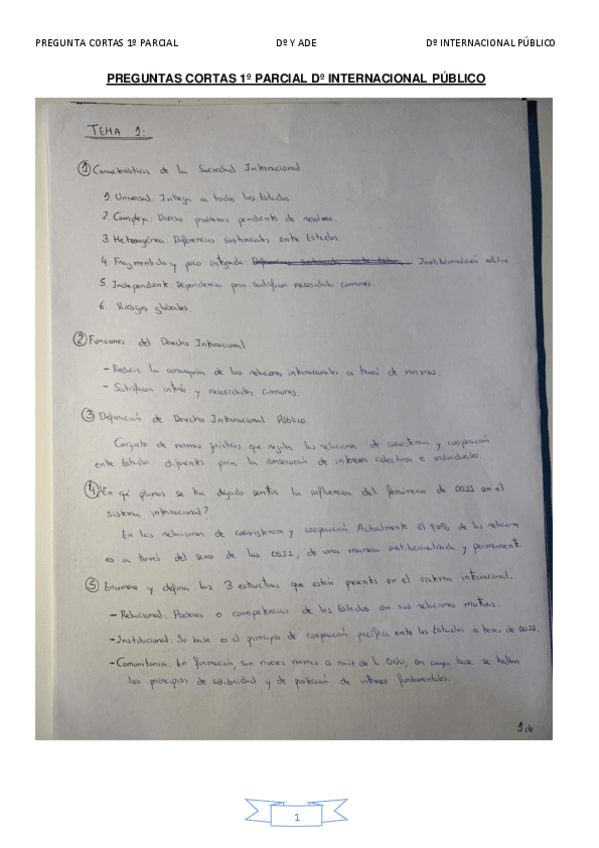 PREGUNTA CORTAS 1º PARCIAL Dº Y ADE Dº INTERNACIONAL PÚBLICO
PREGUNTAS CORTAS 1º PARCIAL Dº INTERNACIONAL PÚBLICO
TEMA 1:
① Características de la Sociedad Internacional.
1. Universal: Integra a todos los Estados
2. Compleja: Diverso problemas pendiente de resolver.
3. Heterogénea: Diferencias sustanciales entre Estados.
4. Fragmentada y poco integrada. Institucionalización relativa
5. Independiente. Dependencia para satisfacer necesidades comunes.
6. Riesgos globales.
② Funciones del Derecho Internacional
- Reducir la anarquía de las relaciones internacionales a través de normas.
- Satisfacer interés y necesidades comunes.
③ Definición de Derecho Internacional Público.
Conjunto de normas jurídicas que regula las relaciones de coexistencia y cooperación
entre Estados diferentes para la consecución de intereses colectivos e individuales.
④ ¿En qué planos se ha dejado sentir la influencia del fenómeno de OOII en el
sistema internacional?
En las relaciones de coexistencia y cooperación. Actualmente el 90% de las relaciones
es a través del seno de las OOII, de una manera institucionalizada y permanente.
⑤ Enumera y defina las 3 estructuras que están presentes en el sistema internacional.
- Relacional: Poderes o competencias de los Estados en sus relaciones mutuas.
- Institucional: Su base es el principio de cooperación pacífica entre los Estados a través de OOII.
- Comunitaria: En formación, son nuevas normas a raíz de L ONU, en cuya base se hallan
los principios de solidaridad y de protección de intereses fundamentales.
1 de
1